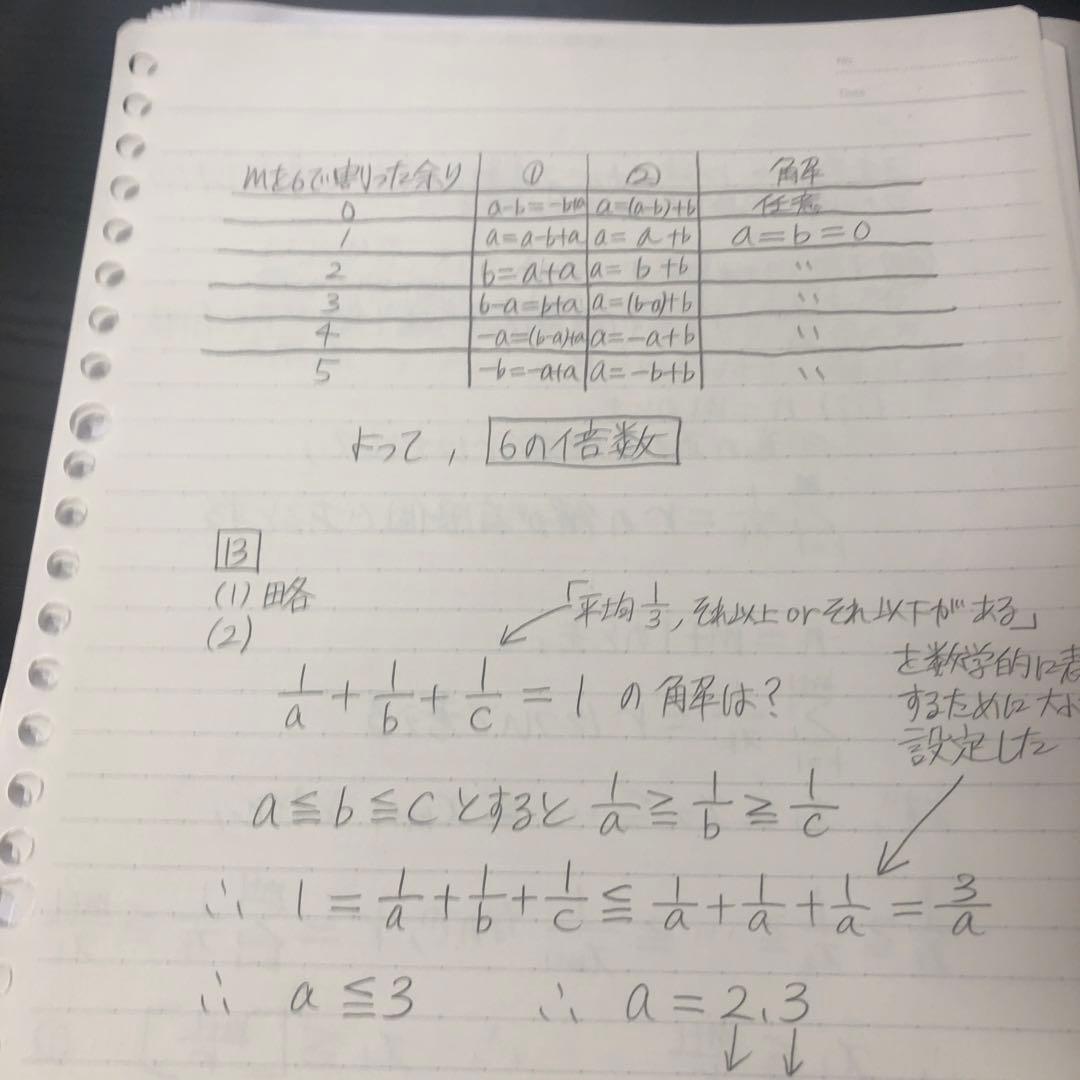 mを6で割った余り ① ② 解
0 a-b=-b+a a=(a-b)+b 任意
1 a=a-b+a a=a+b a=b=0
2 b=a+a a=b+b 〃
3 b-a=b+a a=(b-a)+b 〃
4 -a=(b-a)+a a=-a+b 〃
5 -b=-a+a a=-b+b 〃
よって, 6の倍数
13
(1) 略
(2)
「平均1/3, それ以上orそれ以下がある」
を数学的に表
するために大小
設定した
1/a + 1/b + 1/c = 1 の解は?
a≦b≦cとすると 1/a ≧ 1/b ≧ 1/c
∴ 1 = 1/a + 1/b + 1/c ≦ 1/a + 1/a + 1/a = 3/a
∴ a≦3 ∴ a=2、3